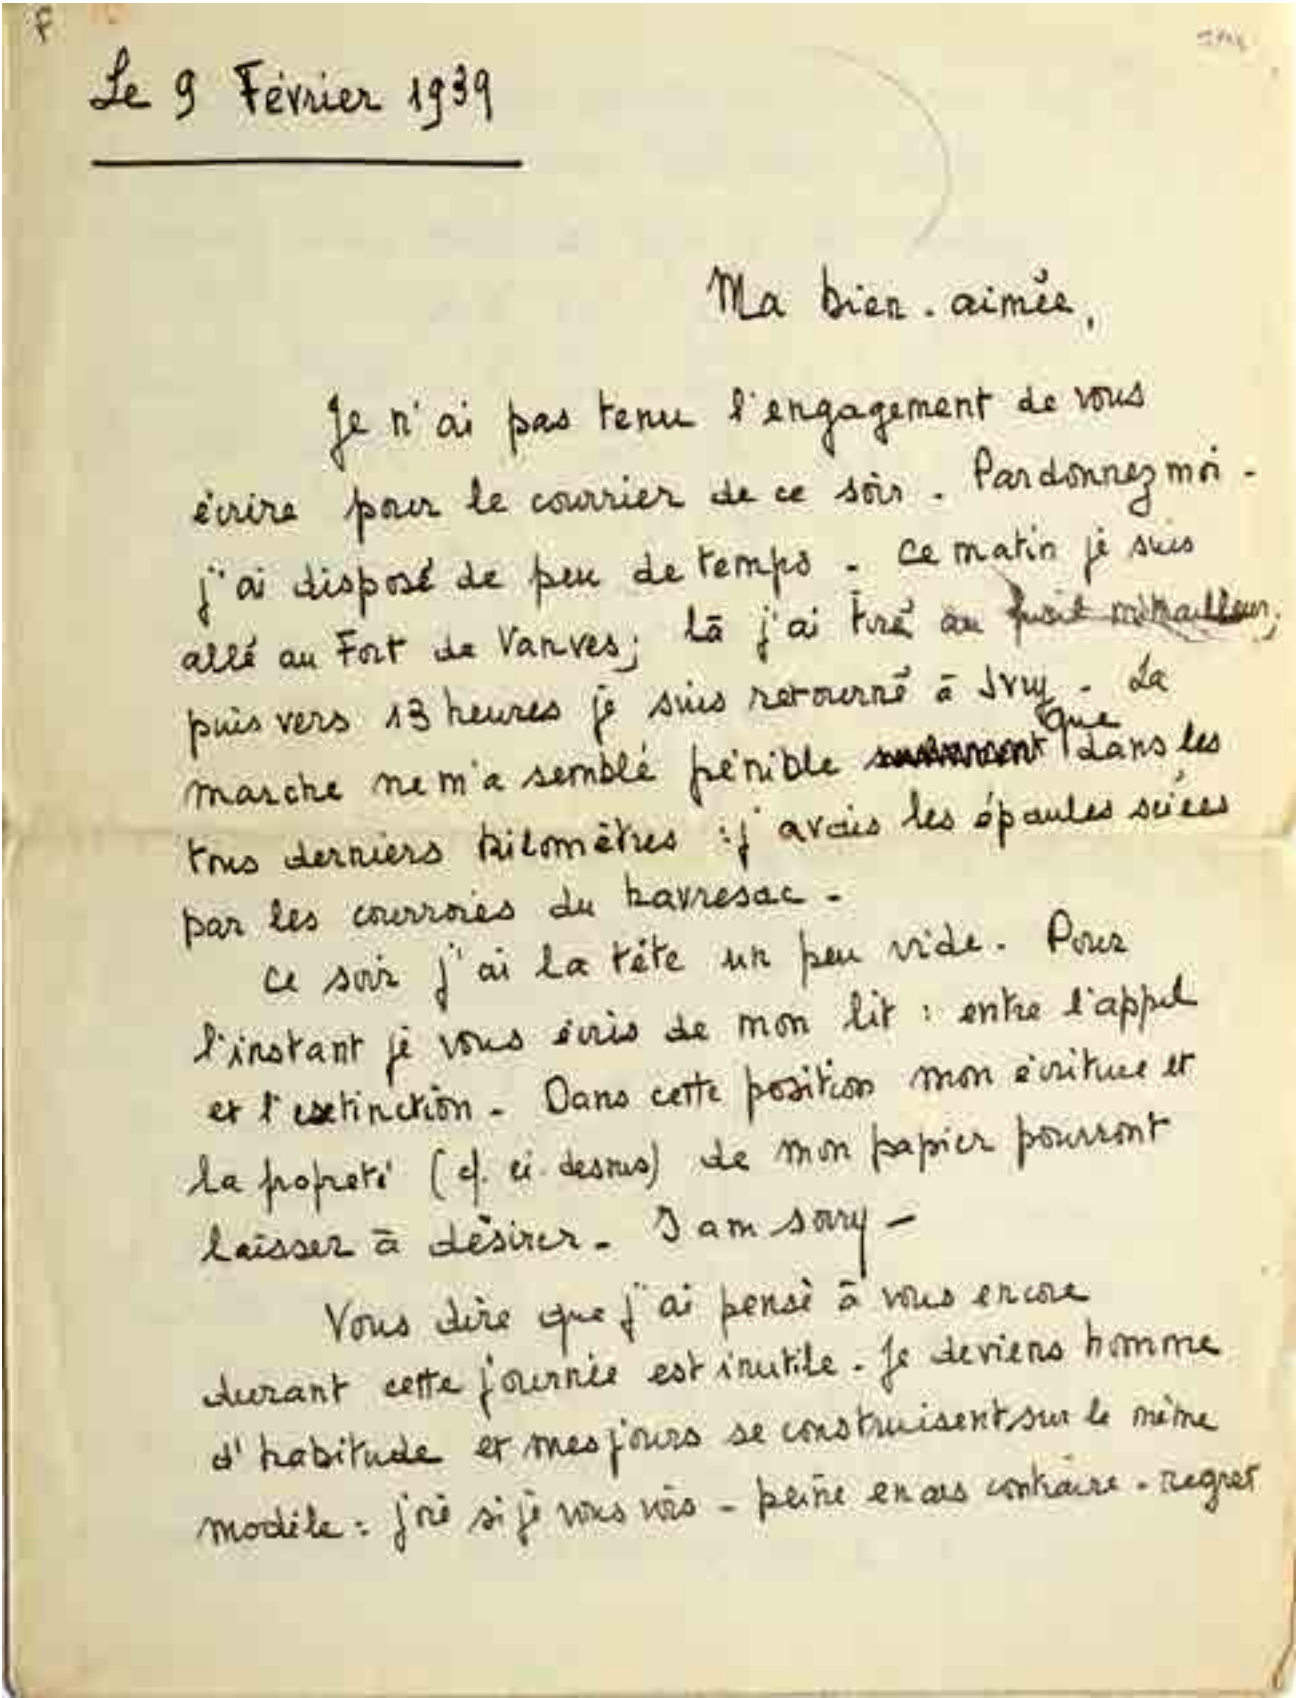 F
Le 9 Février 1939
Ma bien-aimée,
Je n'ai pas tenu l'engagement de vous
écrire pour le courrier de ce soir - Pardonnez moi -
j'ai disposé de peu de temps - Ce matin je suis
allé au Fort de Vanves; là j'ai tiré au fusil mitrailleur;
puis vers 13 heures je suis retourné à Ivry - La
marche ne m'a semblé pénible que dans les
tous derniers kilomètres : j'avais les épaules sciées
par les courroies du havresac -
Ce soir j'ai la tête un peu vide. Pour
l'instant je vous écris de mon lit : entre l'appel
et l'extinction - Dans cette position mon écriture et
la propreté (cf. ci-dessus) de mon papier pourront
laisser à désirer - I am sorry -
Vous dire que j'ai pensé à vous encore
durant cette journée est inutile - Je deviens homme
d'habitude et mes jours se construisent sur le même
modèle : joie si je vous vois - peine en cas contraire - regret